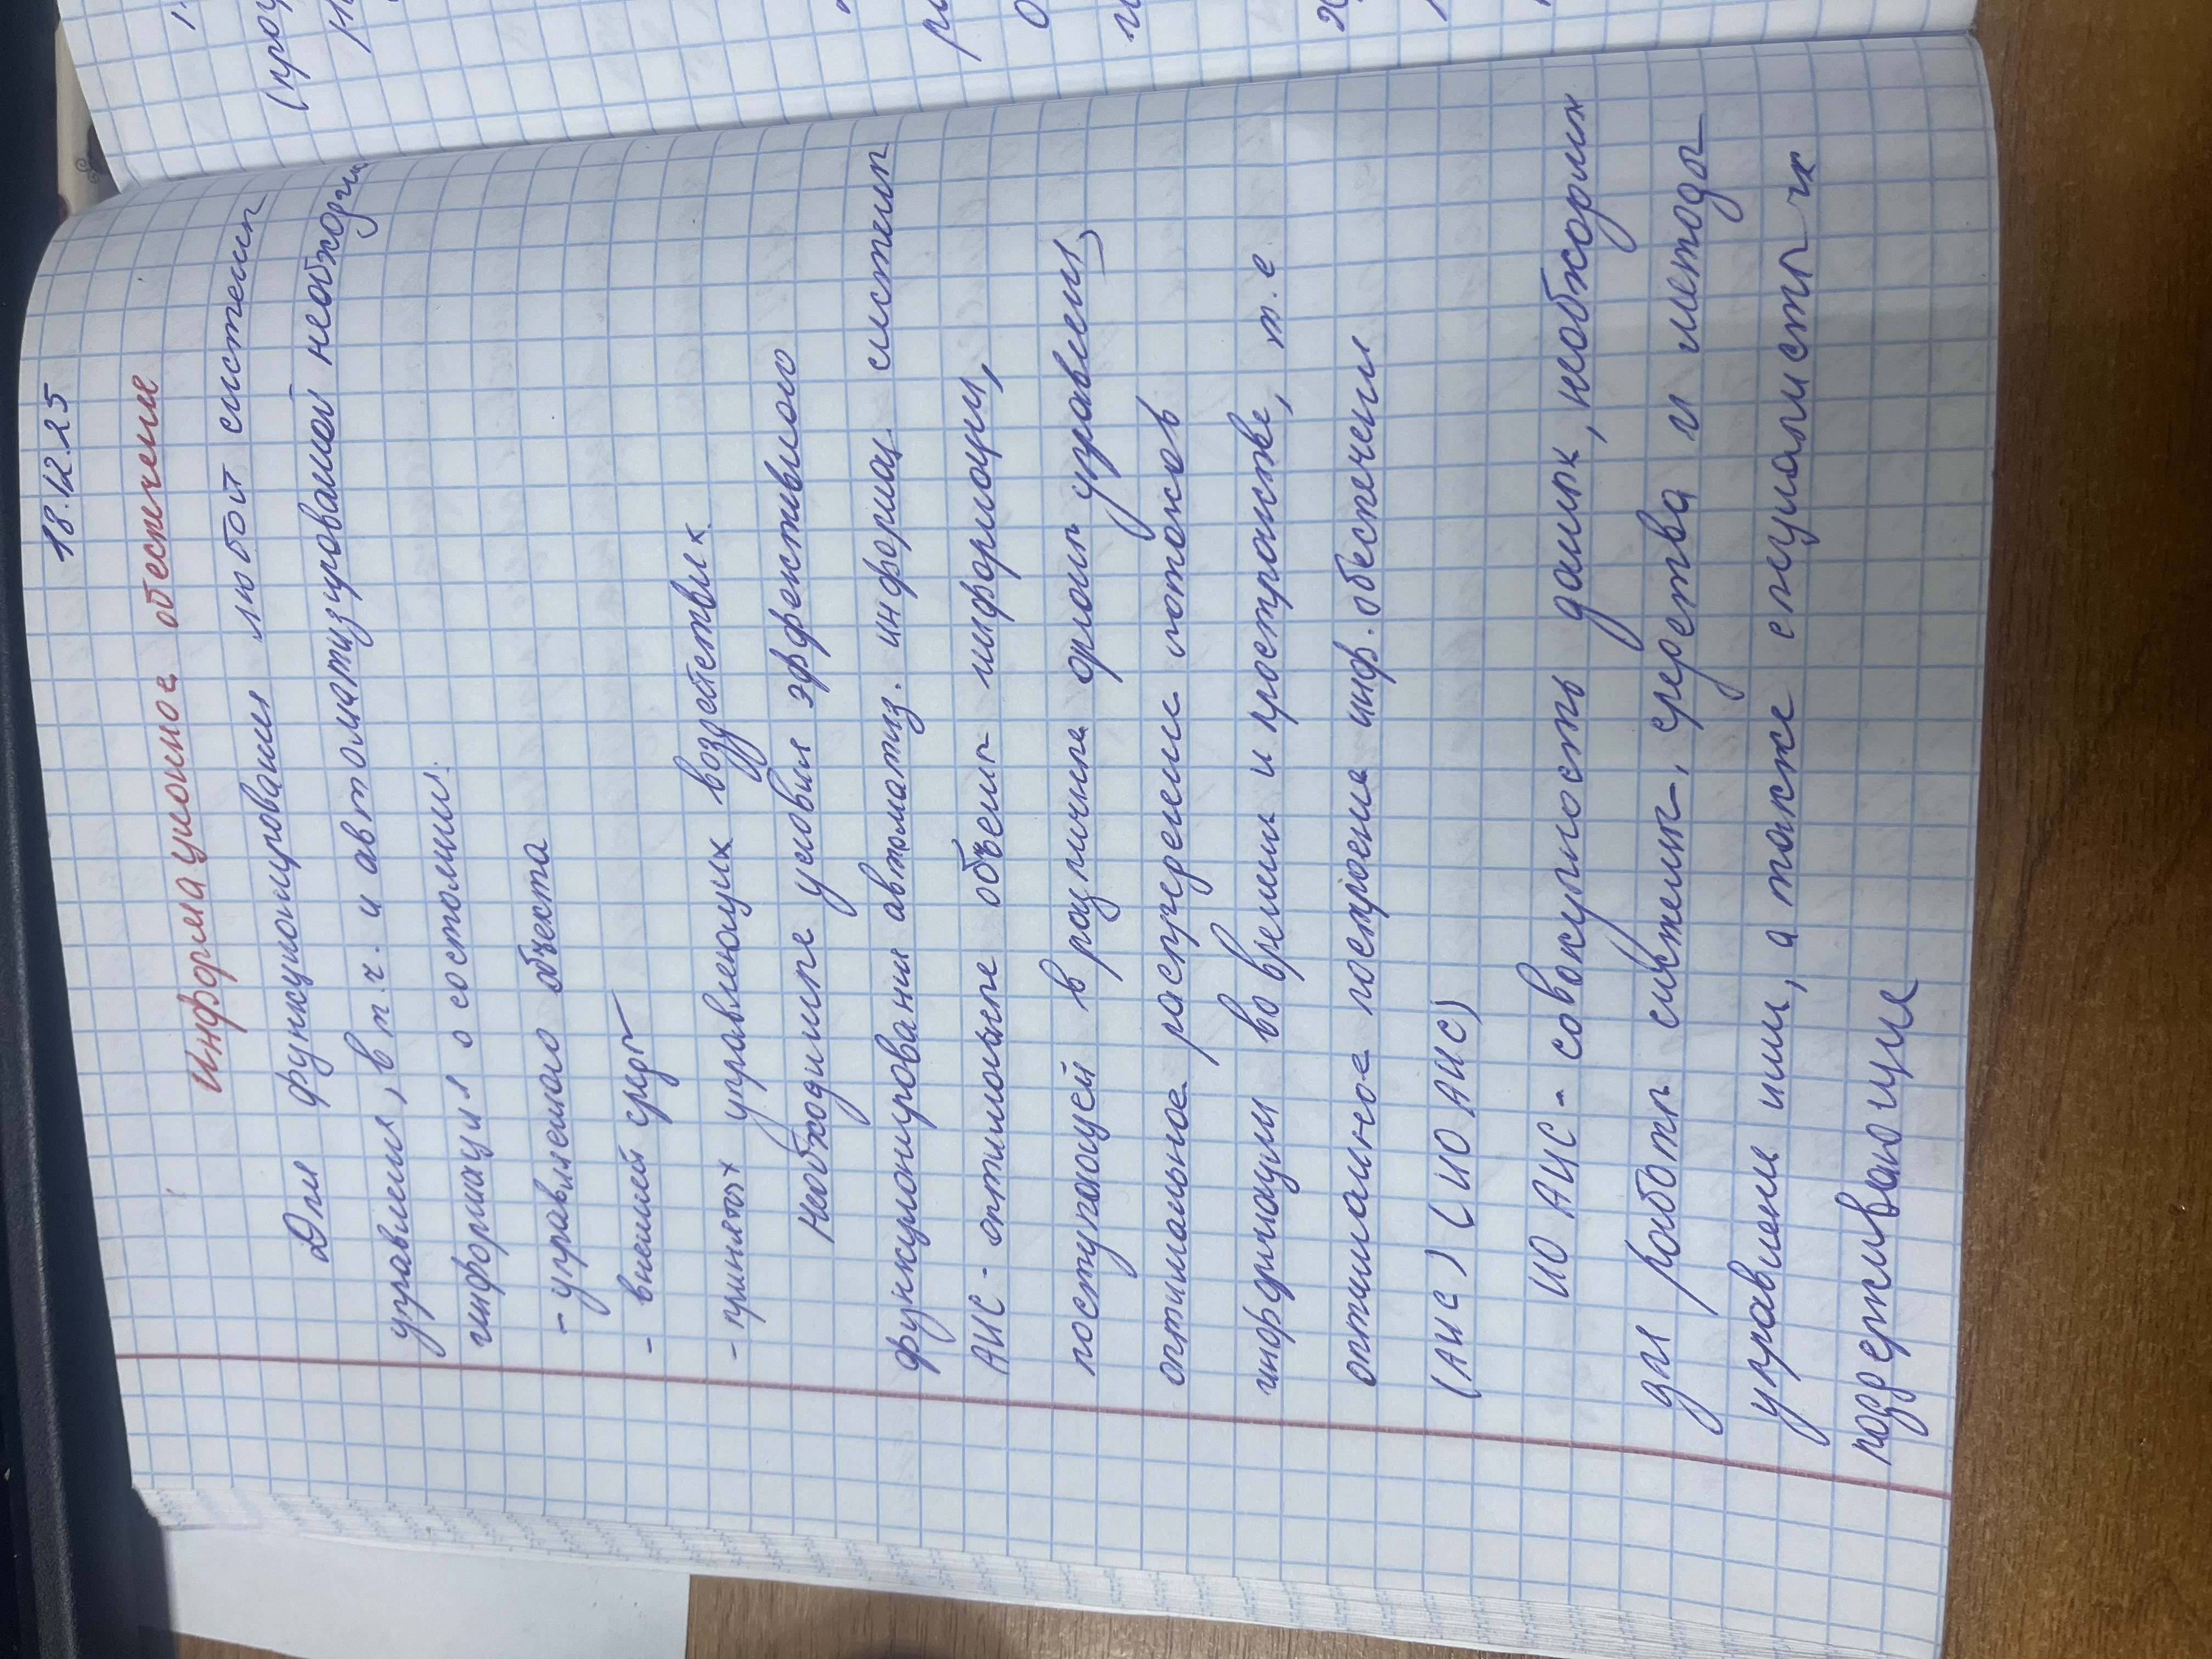 18.12.25
Информационое обеспечение
Для функционирования любой системы
управления, в т.ч. и автоматизированой необходим
информация о состоянии:
- управляемого объекта
- внешней среды
- принятых управляющих воздействиях.
Необходимые условия эффективного
функционирования автоматиз. информац. системы
АИС - оптимальные объемы информации,
поступающей в различные органы управления,
оптимальное распределение потоков
информации во времени и пространстве, т.е
оптимальное построение инф. обеспечения
(АИС) (ИО АИС)
ИО АИС - совокупность данных, необходимых
для работы системы, средства и методы
управления ими, а также специалисты их
поддерживающие